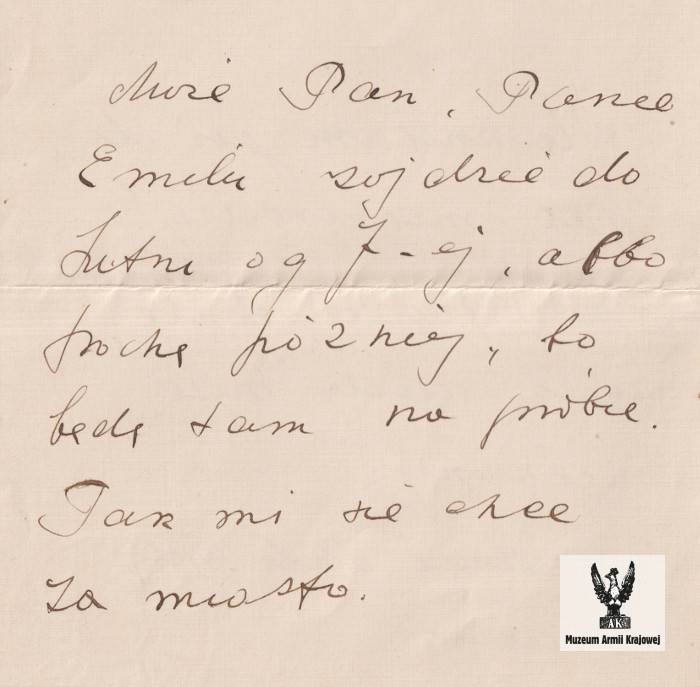 Może Pan, Panie
Emilu zojdzie do
Lutni o g 7-ej, albo
trochę później, bo
będę tam na próbie.
Tak mi się chce
za miasto.
AK
Muzeum Armii Krajowej